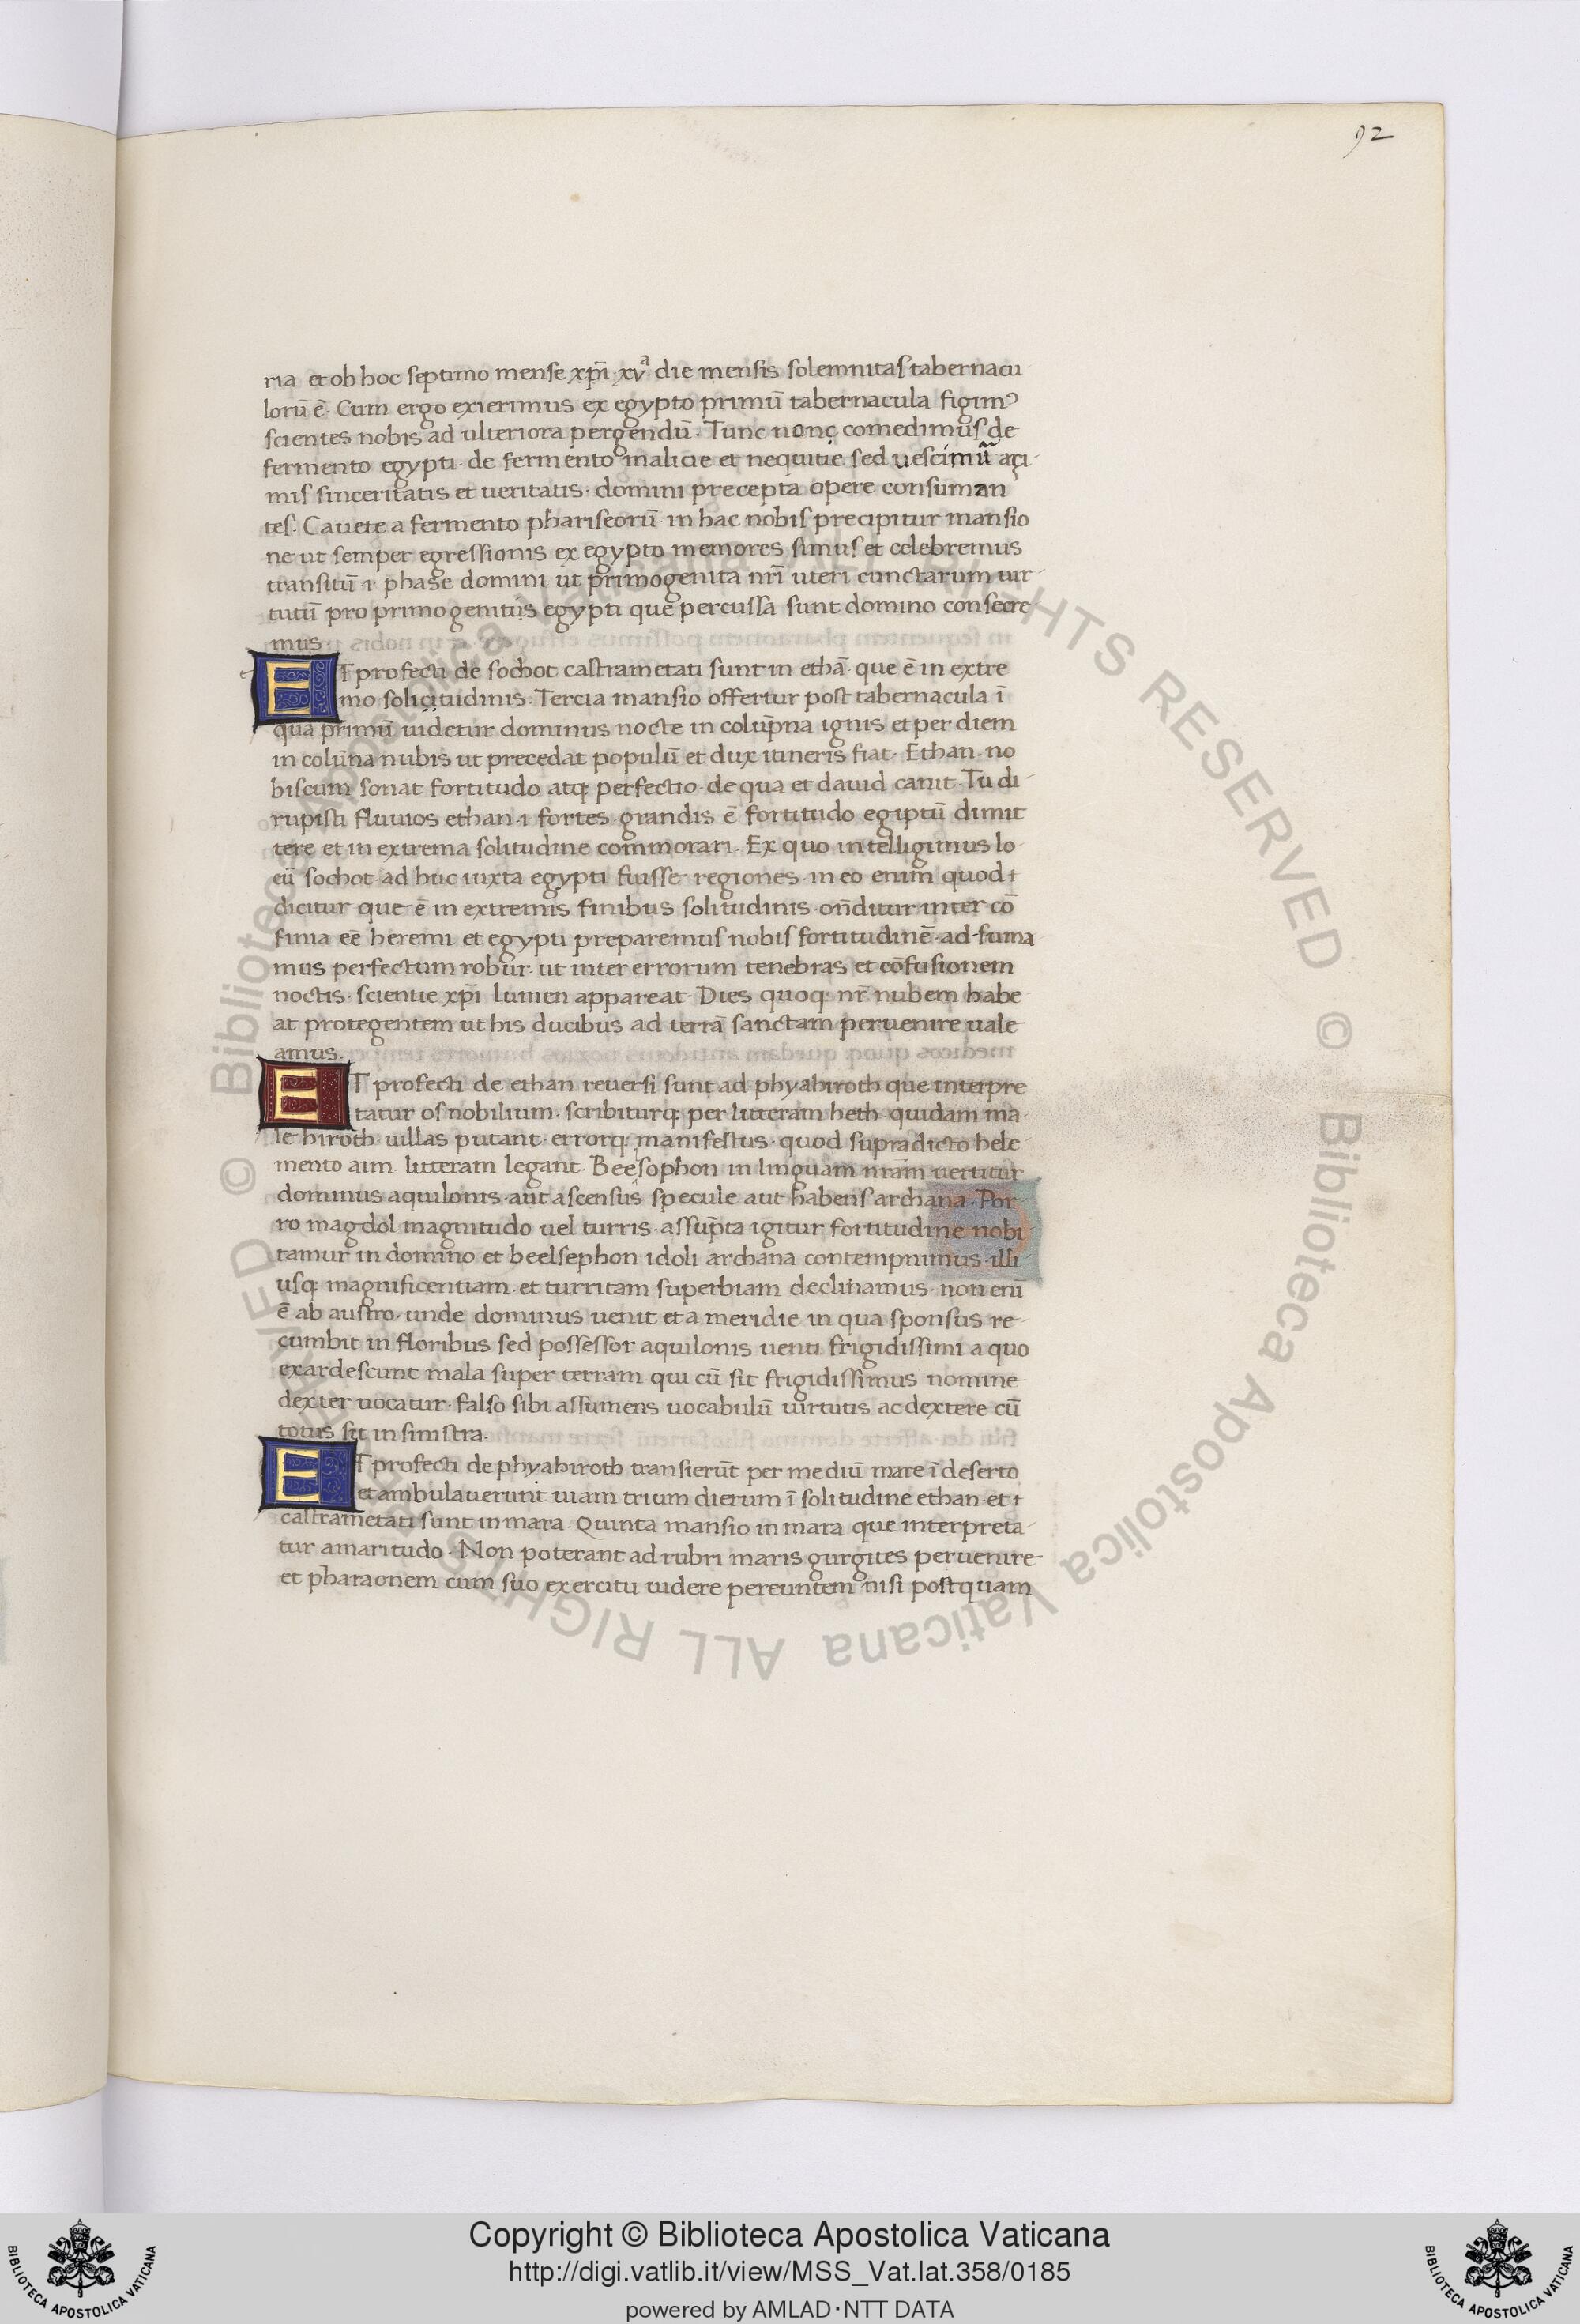 92
ria et ob hoc septimo mense xp̄i xvª die mensis solemnitas tabernacu
lorū ē. Cum ergo exierimus ex egypto primū tabernacula figimꝰ
scientes nobis ad ulteriora pergendū. Tunc non comedimus de
fermento egypti de fermento malicie et nequitie sed uescimū açi
mis sinceritatis et ueritatis. domini precepta opere consuman
tes. Cauete a fermento phariseorū in hac nobis precipitur mansio
ne ut semper egressionis ex egypto memores simus et celebremus
transitū .i. phase domini ut primogenita nr̄i uteri cunctarum uir
tutū pro primogenitis egypti que percussa sunt domino consecre
mus
ET profecti de sochot castrametati sunt in ethā que ē in extre
mo solicitudinis. Tercia mansio offertur post tabernacula ī
qua primū uidetur dominus nocte in colūpna ignis et per diem
in colūna nubis ut precedat populū et dux itineris fiat. Ethan no
biscum sonat fortitudo atq; perfectio de qua et dauid canit. Tu di
rupisti fluuios ethan .i. fortes grandis ē fortitudo egiptū dimit
tere et in extrema solitudine commorari. Ex quo intelligimus lo
cū sochot ad huc iuxta egypti fuisse regiones in eo enim quod
dicitur que ē in extremis finibus solitudinis on̄ditur inter cō
finia eē heremi et egypti preparemus nobis fortitudinē ad suma
mus perfectum robur ut inter errorum tenebras et cōfusionem
noctis scientie xp̄i lumen appareat. Dies quoq; nr̄ nubem habe
at protegentem ut his ducibus ad terrā sanctam peruenire uale
amus.
ET profecti de ethan reuersi sunt ad phyahiroth que interpre
tatur os nobilium. scribiturq; per litteram heth. quidam ma
le hiroth uillas putant. errorq; manifestus quod supradicto hele
mento ain litteram legant. Beesophon in linguam nr̄am uertitur
dominus aquilonis aut ascensus specule aut habens archana. Por
ro magdol magnitudo uel turris. assūpta igitur fortitudine nobi
tamur in domino et beelsephon idoli archana contempnimus illi
usq; magnificentiam et turritam superbiam declinamus. non enī
ē ab austro unde dominus uenit et a meridie in qua sponsus re
cumbit in floribus sed possessor aquilonis uenti frigidissimi a quo
exardescunt mala super terram qui cū sit frigidissimus nomine
dexter uocatur. falso sibi assumens uocabulū uirtutis ac dextere cū
totus sit in sinistra.
ET profecti de phyahiroth transierūt per mediū mare ī deserto
et ambulauerunt uiam trium dierum ī solitudine ethan et
castrametati sunt in mara. Quinta mansio in mara que interpreta
tur amaritudo. Non poterant ad rubri maris gurgites peruenire
et pharaonem cum suo exercitu uidere pereuntem nisi postquam
© Biblioteca Apostolica Vaticana ALL RIGHTS RESERVED © Biblioteca Apostolica Vaticana ALL RIGHTS RESERVED
Copyright © Biblioteca Apostolica Vaticana
http://digi.vatlib.it/view/MSS_Vat.lat.358/0185
powered by AMLAD·NTT DATA
BIBLIOTECA APOSTOLICA VATICANA
BIBLIOTECA APOSTOLICA VATICANA